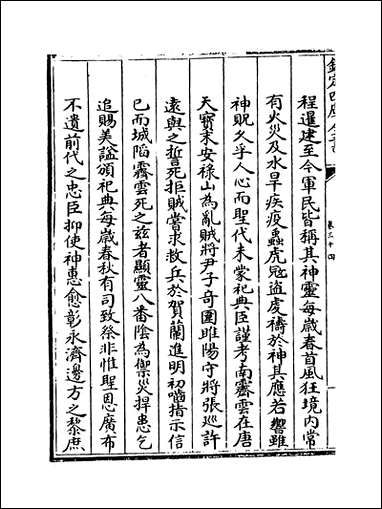 欽定四庫全書
卷三十四
程暹建至今軍民皆稱其神靈每歲春首風狂境内常
有火災及水旱疾疫蟲虎冦盗處禱於神其應若響雖
神貺久孚人心而聖代未蒙祀典臣謹考南霽雲在唐
天寳末安禄山為亂賊將尹子奇圍睢陽守將張巡許
逺與之誓死拒賊嘗求救兵於賀蘭進明初嚙指示信
已而城䧟霽雲死之兹者顯靈八番隂為禦災捍患乞
追賜美諡頒祀典每歲春秋有司致祭非惟聖恩廣布
不遺前代之忠臣抑使神惠愈彰永濟邊方之黎庶